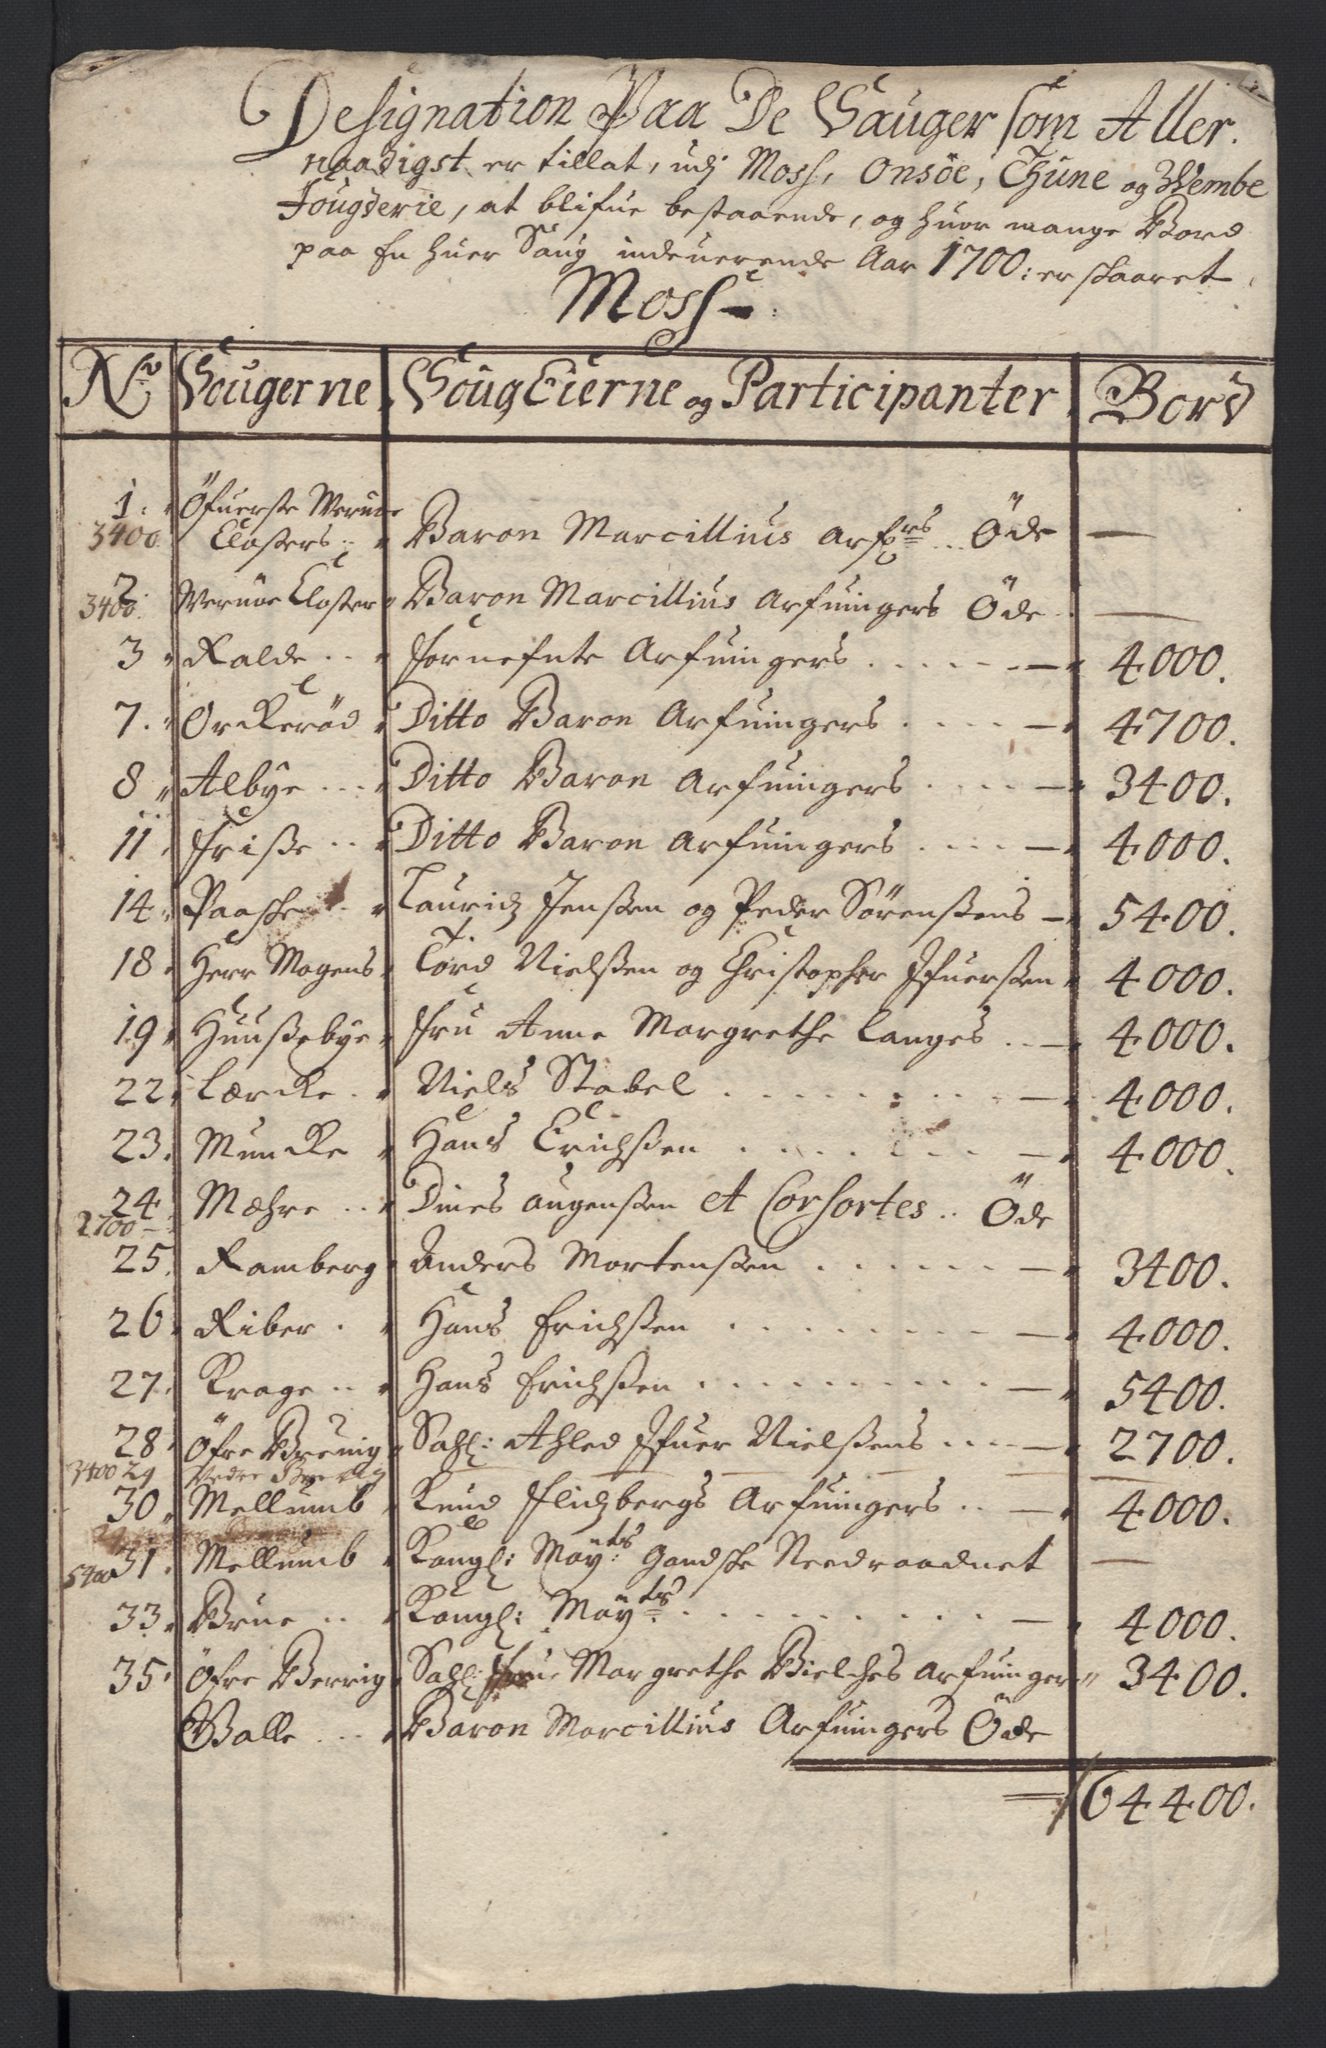 Designation Paa De Sauger som Aller.
naadigst er tillat, udj Moss, Onsöe, Thune og Wembe
Fougderie, at blifue bestaaende, og huor mange Bord
paa En huer Saug indeuerende Aar 1700: er skaaret
Moss
No Sougerne SougEierne og Participanter Bord
1. Öfuerste Werne
3400 Closters Baron Marcillius Arfrs Öde —
2 Wernöe Closter Baron Marcillius Arfuingers Öde —
3400
3 Kalde fornefnte Arfuingers 4000.
7. Orkeröd Ditto Baron Arfuingers 4700.
8 Albye Ditto Baron Arfuingers 3400.
11 friße Ditto Baron Arfuingers 4000.
14 Paaske Lauridz Jenßen og Peder Sörenßens 5400.
18 Herr Mogens Tord Nielßen og Christopher Ifuerßen 4000.
19 Huußebye fru Anne Margrethe Langes 4000.
22 Lærcke Niels Stabel 4000.
23. Muncke Hans Erichßen 4000.
24 Mæhre Dines Augenßen et Consortes Öde
2700
25. Ramberg Anders Mortenßen 3400.
26 Riber Hans Erichßen 4000.
27. Krage Hans Erichßen 5400.
28 Öfre Brenig Sahl: Ahled Ifuer Nielßens 2700.
3400 29 Nedre
30 Mellumb Knud flidzbergs Arfuingers 4000.
31. Mellumb Kongl: Mayts: Gandske Needraadnet —
5400
33. Brue Kongl: Mayts 4000.
35 Öfre Berrig Sahl: frue Margrethe Bielches Arfuinger 3400.
Balle Baron Marcillius Arfuingers Öde
64400.